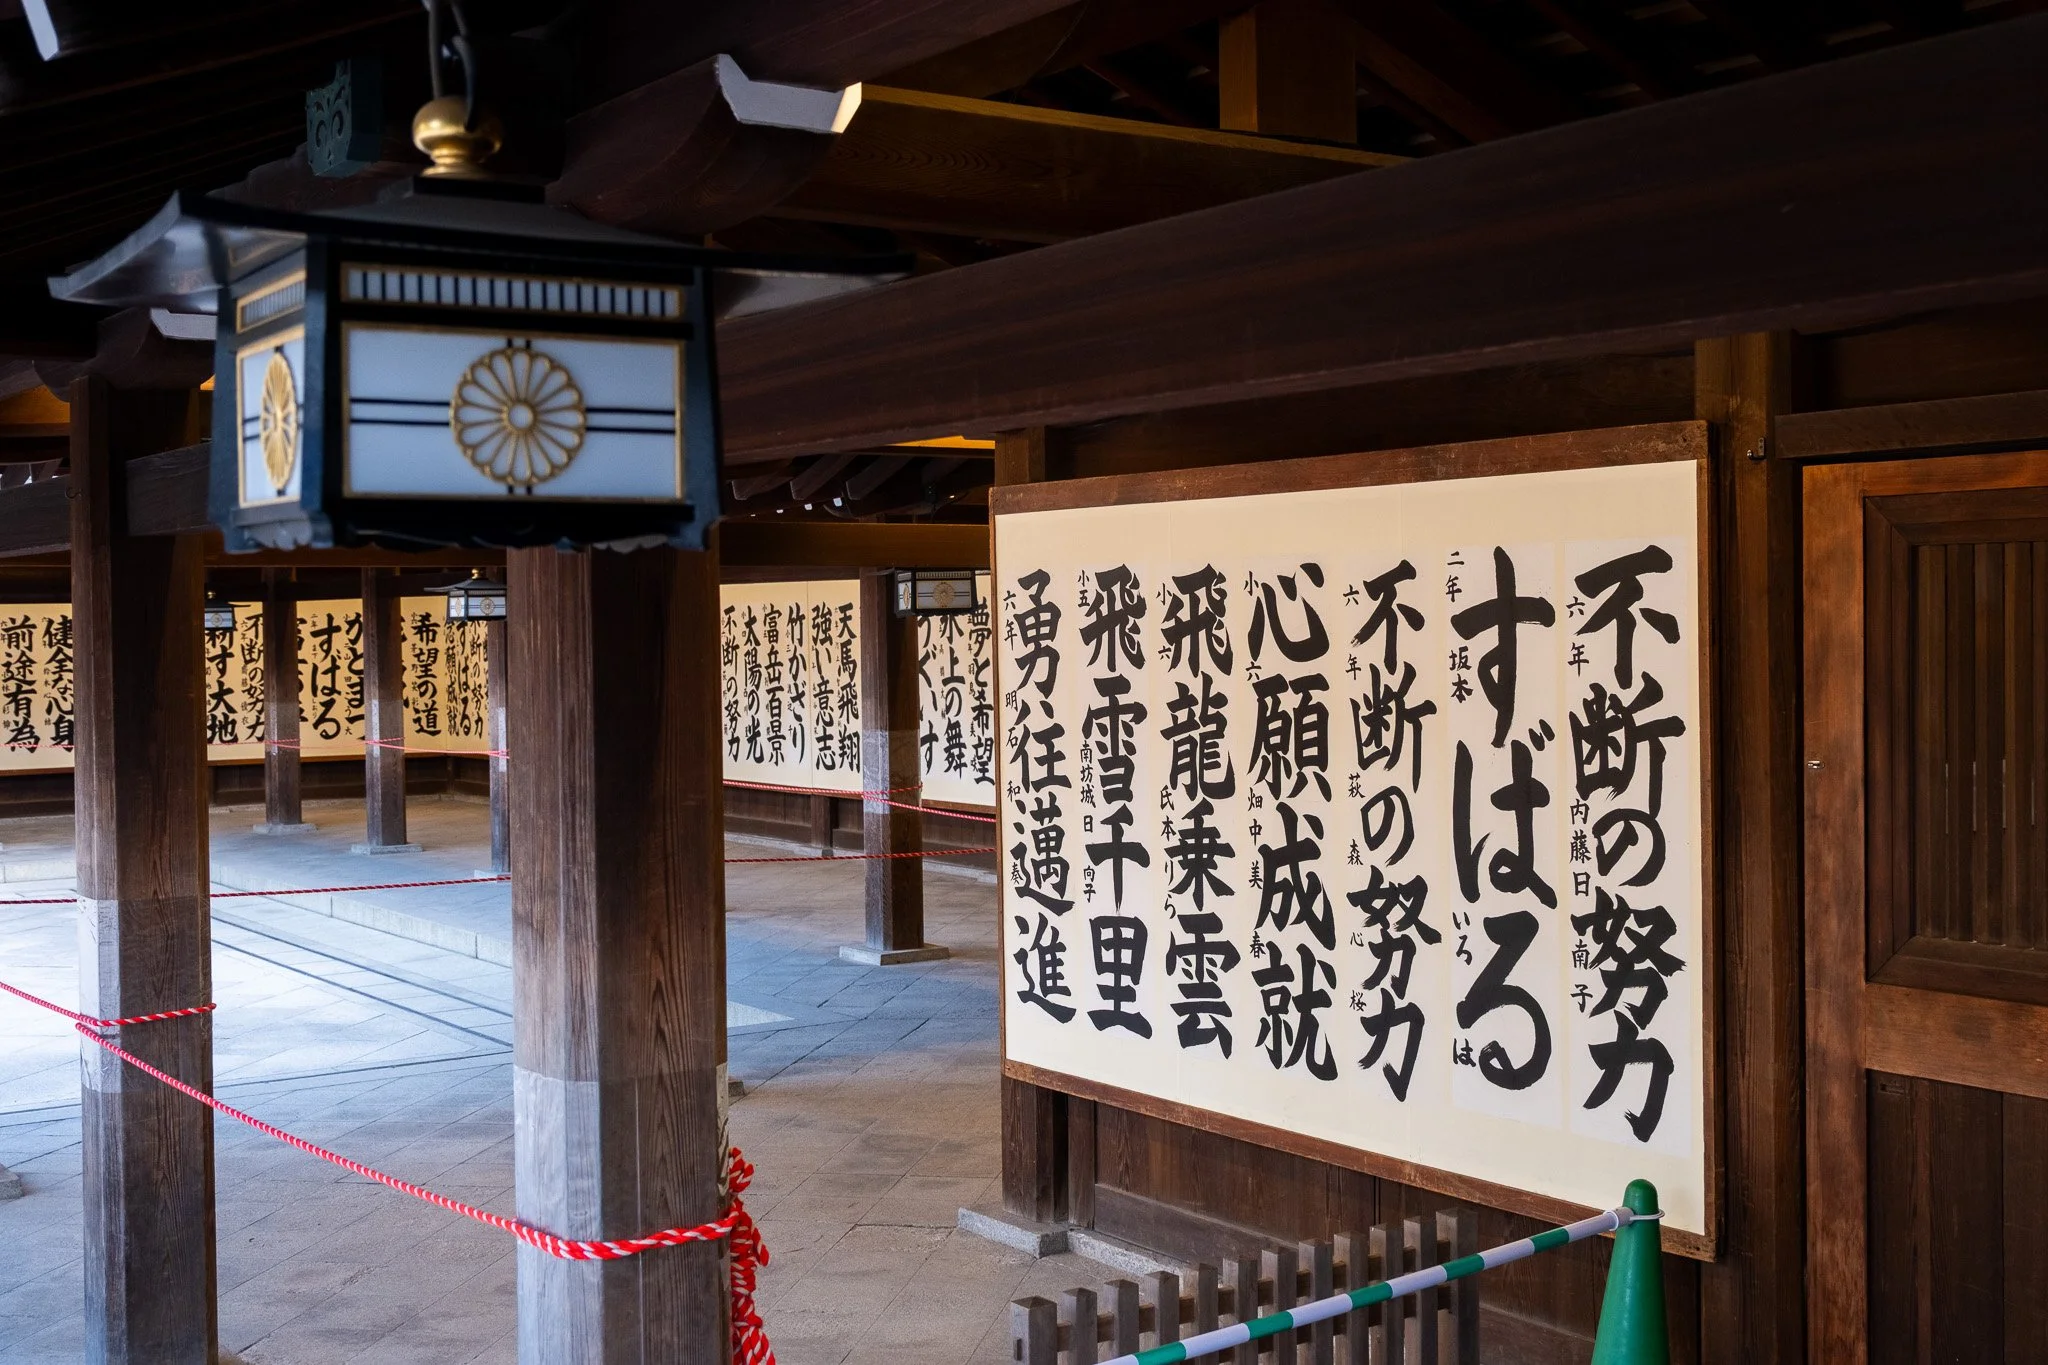 不断の努力
六年 内藤日南子
すばる
二年 坂本いろは
不断の努力
六年 萩森心桜
心願成就
小六 畑中美春
飛龍乗雲
小六 氏本りら
飛雪千里
小五 南坊城日向子
勇往邁進
六年 明石和奏
夢と希望
氷上の舞
うぐいす
天馬飛翔
強い意志
竹かざり
富岳百景
太陽の光
不断の努力
不断の努力
すばる
心願成就
希望の道
すばる
不断の努力
健全な心身
前途有為